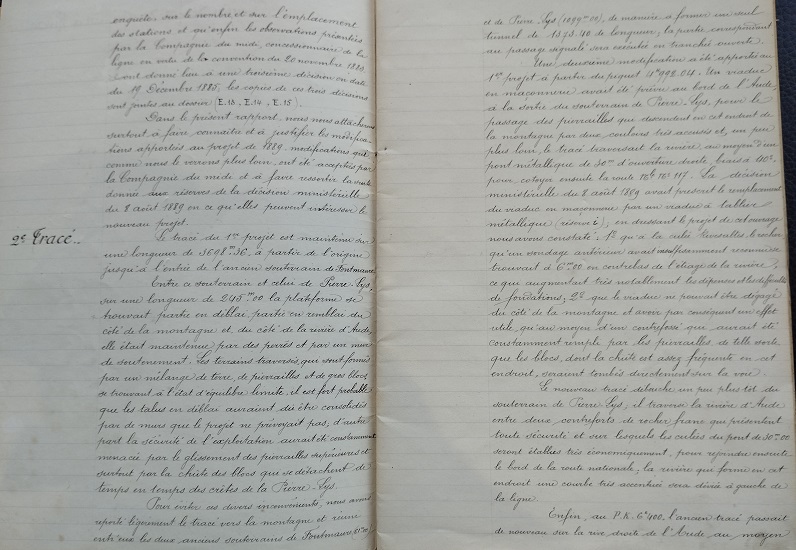 enquêtes sur le nombre et sur l'emplacement
des stations et qu'enfin les observations présentées
par la Compagnie du midi, concessionnaire de la
ligne en vertu de la convention du 20 novembre 1880
dont donné lieu à une troisième décision en date
du 19 Décembre 1885, les copies de ces trois décisions
sont jointes au dossier (E.13. E.14. E.15).
Dans le présent rapport, nous nous attacherons
surtout à faire connaître et à justifier les modifica-
tions apportées au projet de 1889, modifications qui
comme nous le verrons plus loin, ont été acceptées par
la Compagnie du midi et à faire ressortir la suite
donnée aux réserves de la décision ministérielle
du 8 août 1889 en ce qu'elles peuvent intéresser le
nouveau projet.
2º Tracé..
Le tracé du 1er projet est maintenu sur
une longueur de 3698m36, à partir de l'origine
jusqu'à l'entrée de l'ancien souterrain de Fontmaure.
Entre ce souterrain et celui de Pierre-Lys,
sur une longueur de 245m00 la plateforme se
trouvait partie en déblai, partie en remblai du
côté de la montagne et, du côté de la rivière d'Aude,
elle était maintenue par des perrés et par un mur
de soutènement. Les terrains traversés, qui sont formés
par un mélange de terre, de pierrailles et de gros blocs
se trouvant à l'état d'équilibre limite, il est fort probable
que les talus en déblai auraient dû être consolidés
par de murs que le projet ne prévoyait pas; d'autre
part la sécurité de l'exploitation aurait été constamment
menacée par le glissement des pierrailles supérieures et
surtout par la chûte des blocs qui se détachent de
temps en temps des crêtes de la Pierre-Lys.
Pour éviter ces divers inconvénients, nous avons
reporté légèrement le tracé vers la montagne et réuni
entr'eux les deux anciens souterrains de Fontmaure
et de Pierre-Lys (1099m00), de manière à former un seul
tunnel de 1393.40 de longueur; la partie correspondant
au passage signalé sera exécutée en tranchée ouverte.
Une deuxième modification a été apportée au
1er projet à partir du piquet 4K992.04. Un viaduc
en maçonnerie avait été prévu au bord de l'Aude,
à la sortie du souterrain de Pierre-Lys, pour le
passage des pierrailles qui descendent en cet endroit de
la montagne par deux couloirs très accusés et, un peu
plus loin, le tracé traversait la rivière, au moyen d'un
pont métallique de 30m d'ouverture droite, biais à
pour côtoyer ensuite la route La décision
ministérielle du 8 août 1889 avait prescrit le remplacement
du viaduc en maçonnerie par un viaduc à tablier
métallique (réserve ); en dressant le projet de cet ouvrage
nous avons constaté: 1º qu'à la culée Rivesaltes, le rocher
qu'un sondage antérieur avait insuffisamment reconnu se
trouvait à 6m00 en contrebas de l'étiage de la rivière,
ce qui augmentait très notablement les dépenses et les difficultés
de fondations; 2º que le viaduc ne pouvait être dégagé
du côté de la montagne et avoir par conséquent un effet
utile, qu'au moyen d'un contrefossé qui aurait été
constamment rempli par les pierrailles de telle sorte
que les blocs, dont la chûte est assez fréquente en cet
endroit, seraient tombés directement sur la voie.
Le nouveau tracé débouche un peu plus tôt du
souterrain de Pierre-Lys, il traverse la rivière d'Aude
entre deux contreforts de rocher franc qui présentent
toute sécurité et sur lesquels les culées du pont de 30m00
seront établies très économiquement, pour rejoindre ensuite
le bord de la route nationale; la rivière qui forme en cet
endroit une courbe très accentuée sera déviée à gauche de
la ligne.
Enfin, au P.K. 6K400, l'ancien tracé passait
de nouveau sur la rive droite de l'Aude au moyen